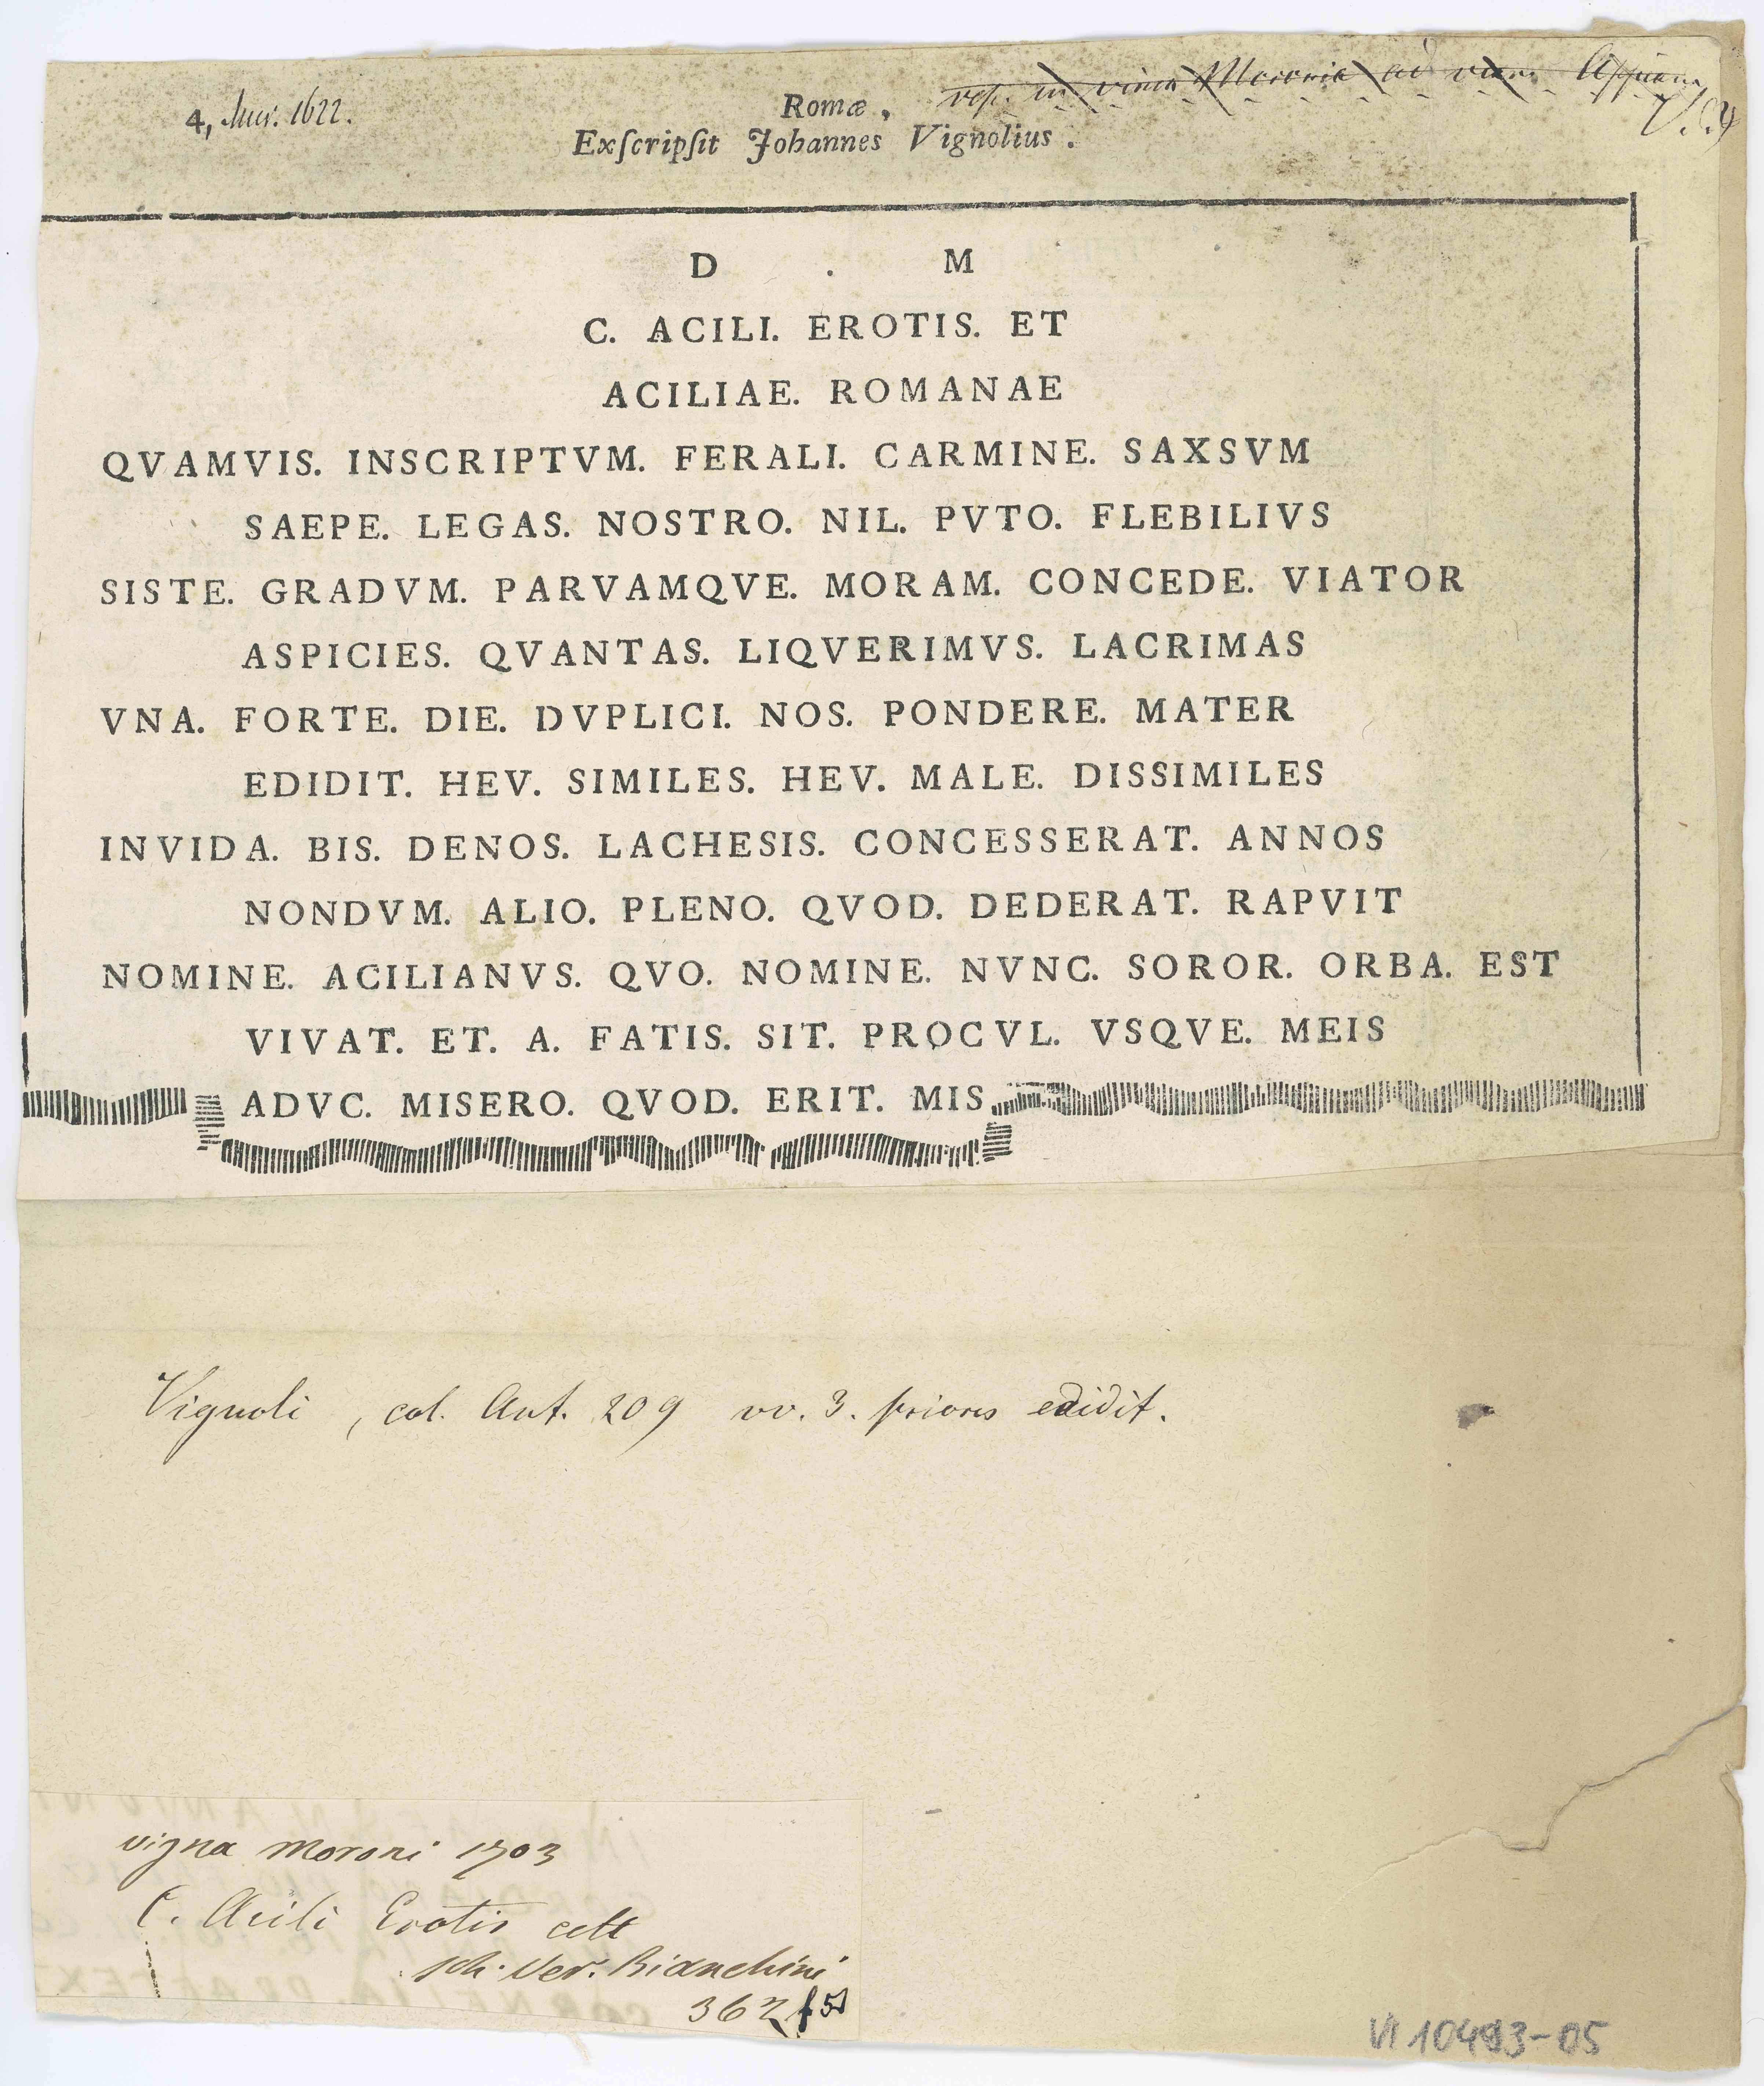 4, Mur. 1622.
Romæ, rep. in vinea Moronia ad viam Appiam
Exſcripſit Johannes Vignolius.
D . M
C. ACILI. EROTIS. ET
ACILIAE. ROMANAE
QVAMVIS. INSCRIPTVM. FERALI. CARMINE. SAXSVM
SAEPE. LEGAS. NOSTRO. NIL. PVTO. FLEBILIVS
SISTE. GRADVM. PARVAMQVE. MORAM. CONCEDE. VIATOR
ASPICIES. QVANTAS. LIQVERIMVS. LACRIMAS
VNA. FORTE. DIE. DVPLICI. NOS. PONDERE. MATER
EDIDIT. HEV. SIMILES. HEV. MALE. DISSIMILES
INVIDA. BIS. DENOS. LACHESIS. CONCESSERAT. ANNOS
NONDVM. ALIO. PLENO. QVOD. DEDERAT. RAPVIT
NOMINE. ACILIANVS. QVO. NOMINE. NVNC. SOROR. ORBA. EST
VIVAT. ET. A. FATIS. SIT. PROCVL. VSQVE. MEIS
ADVC. MISERO. QVOD. ERIT. MIS
Vignoli, col. Ant. 209 vv. 3. priores edidit.
vigna Moroni 1703
C. Acili Erotis cett
sch. Ver. Bianchini
362 f 51
VI 10493-05